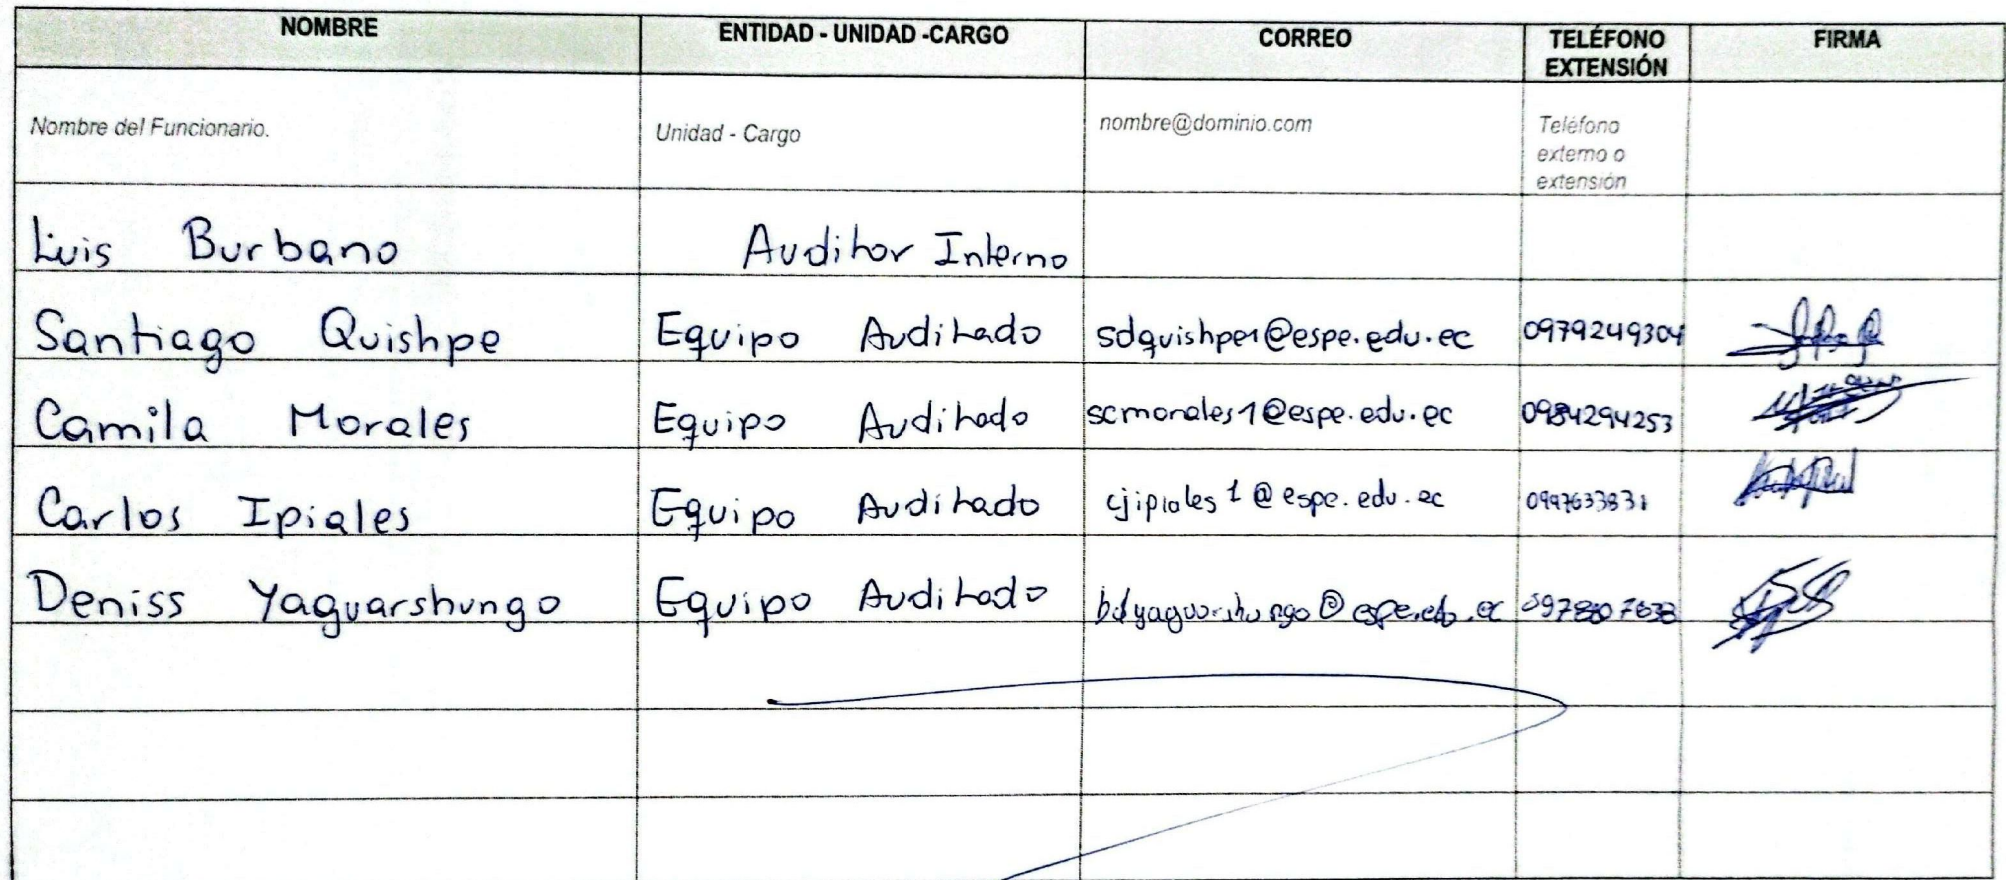 NOMBRE ENTIDAD - UNIDAD -CARGO CORREO TELÉFONO EXTENSIÓN FIRMA
Nombre del Funcionario. Unidad - Cargo nombre@dominio.com Teléfono externo o extensión
Luis Burbano Auditor Interno
Santiago Quishpe Equipo Auditado sdquishpe1@espe.edu.ec 0979249304
Camila Morales Equipo Auditado scmorales1@espe.edu.ec 0984294253
Carlos Ipiales Equipo Auditado cjipiales1@espe.edu.ec
Deniss Yaguarshungo Equipo Auditado bdyaguarshungo@espe.edu.ec